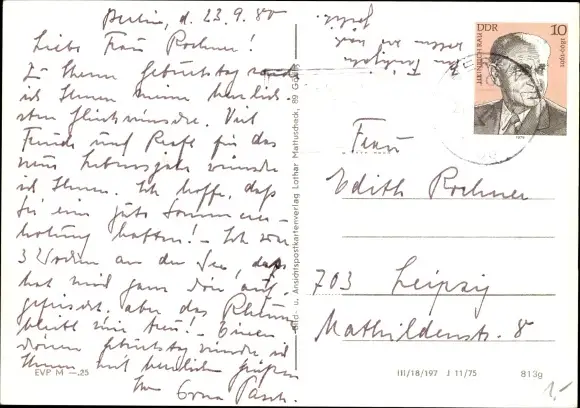 Berlin, d. 23.9.80
Liebe Frau Rochner!
Zu Ihrem Geburtstag sende
ich Ihnen meine herzlich-
sten Glückwünsche. Viel
Freude und Kraft für das
neue Lebensjahr wünsche
ich Ihnen. Ich hoffe, daß
Sie eine gute Sommerer-
holung hatten! – Ich war
3 Wochen an der See, das
hat mich ganz schön auf-
gefrischt, aber das Rheuma
bleibt mir treu! – Einen
schönen Geburtstag wünsche ich
Ihnen mit herzlichen Grüßen
Ihre Erna Pasch.
EVP M –.25
Bild- u. Ansichtspostkartenverlag Lothar Mattuscheck, 89 Görlitz
DDR 10
HEINRICH RAU
1899-1961
1979
Frau
Edith Rochner
703 Leipzig
Mathildenstr. 8
III/18/197 J 11/75 813g
1,-